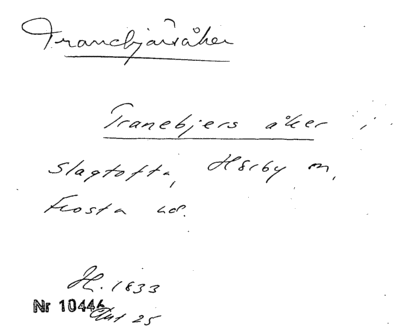 Tranebjärsåker
Tranebjers åker i
Slagtofta, Hörby sn,
Frosta hd.
H. 1833
Nr 10446
Akt 25